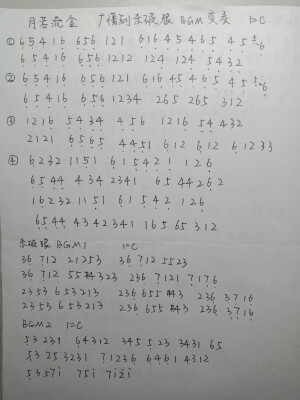 月若流金 广播剧余服狼 BGM 变奏 1=C
① 65416 656 121 616 45465 45
65416 656 1212 124 124 5432
② 65416 656121 616 45465 45
65416 6561234 265 265 312
③ 1216 5434 456 1216 54432
2121 6565 4451 612 612 61233
④ 6232 1151 61 5421 126
6544 434 2341 65 44262
16232 1151 61542 126
6544 43 42341 16565312
BGM1 1=C
36 712 21253 36 712 5523
36 712 55#4323 236 7121 7176
2353 653213 236 655 #43 236 3716
2353 653213 236 655 #43 236 3716
BGM2 1=C
53 231 64312 345523 3431 65
53 253231 71236 6461 4312
5357i 75i 7i2i